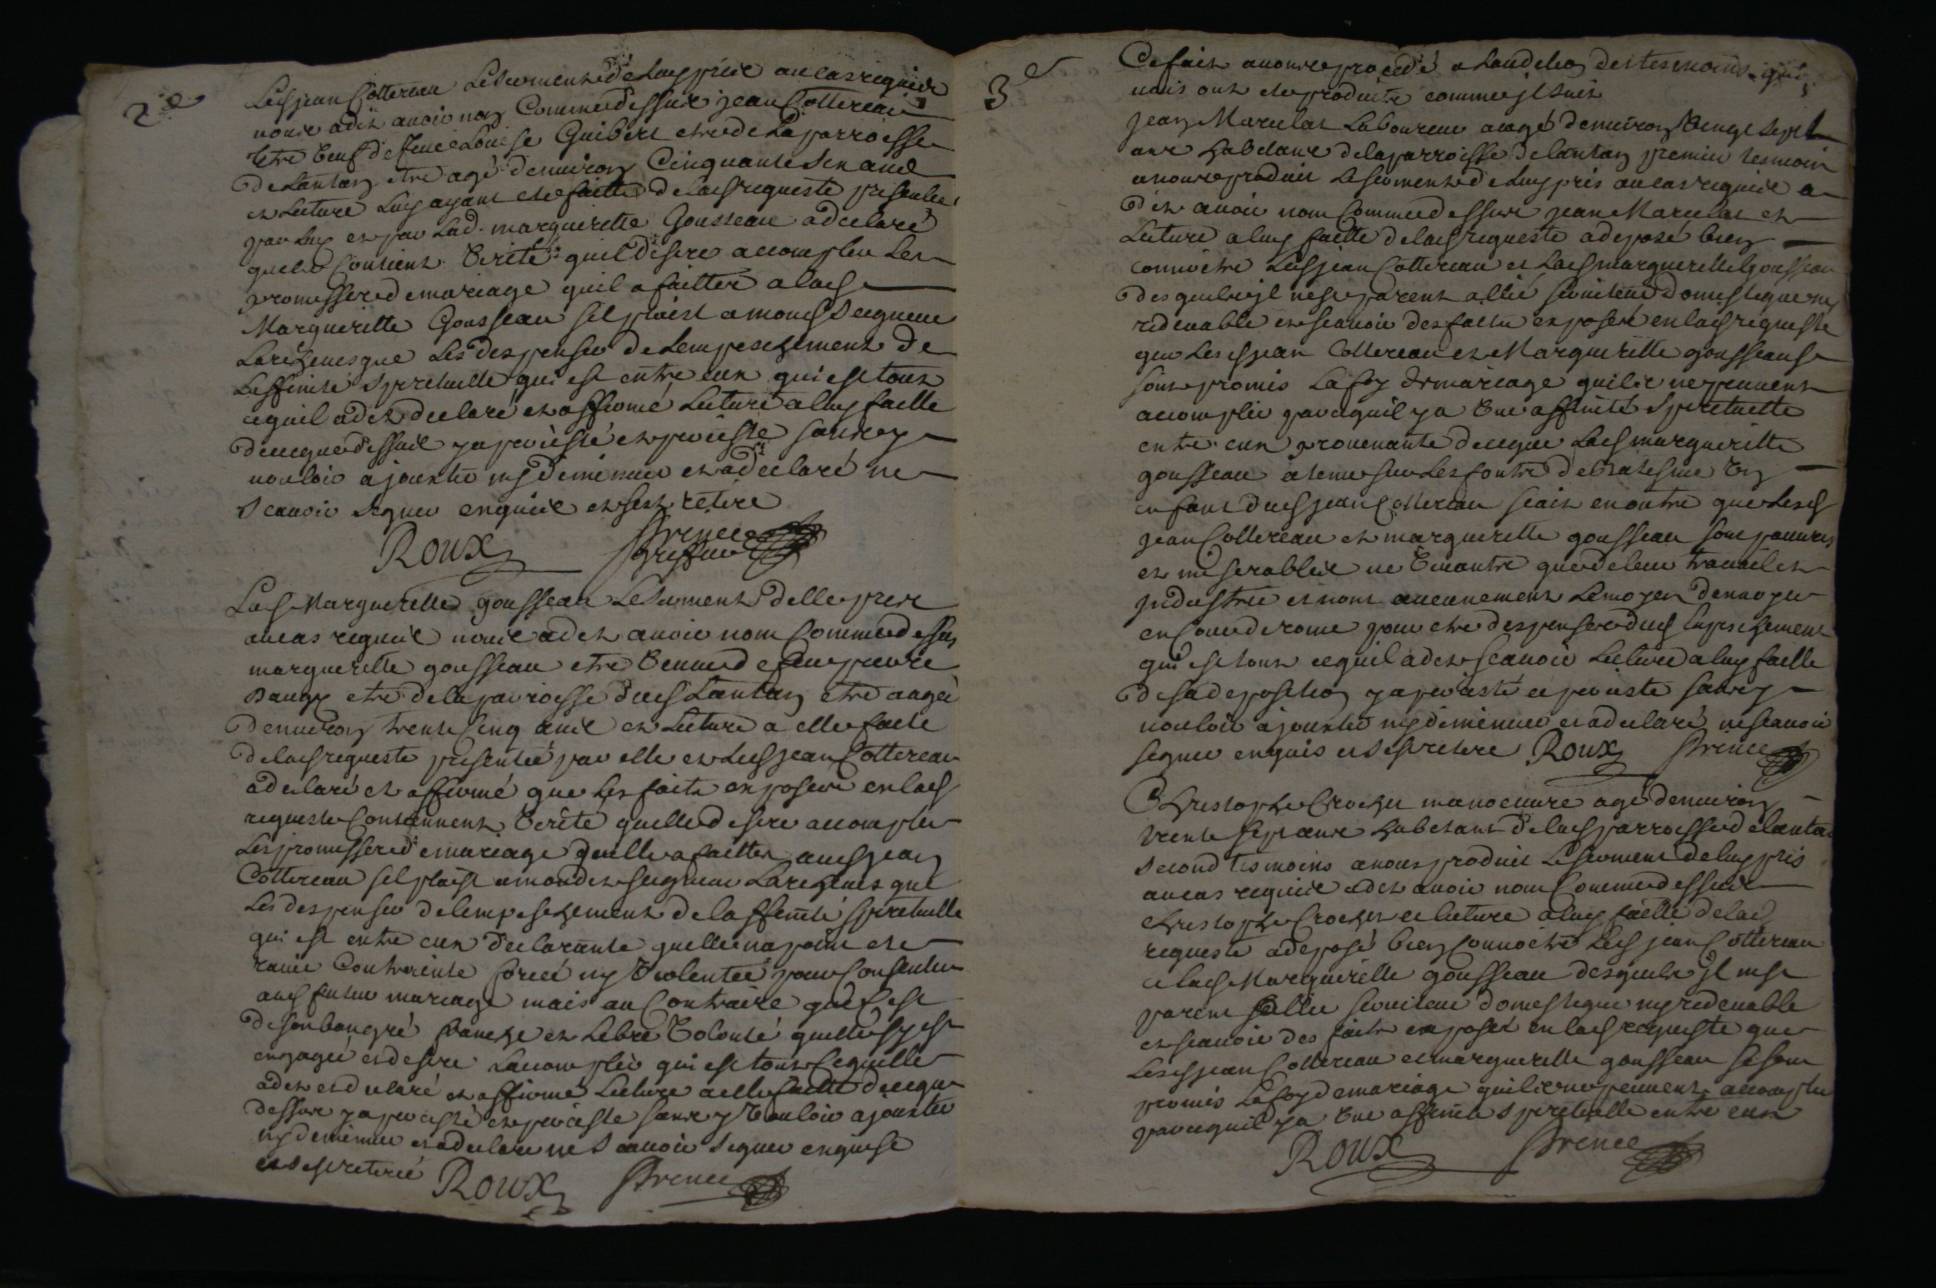 2e
Led jean Cottereau Le serment de luy pris au cas requis
nous a dit avoir nom Comme dessus jean Cottereau
être veuf de feue Louise Guibert etre de La parroisse
de Lantan etre agé d'environ Cinquante six ans
et Lecture Luy ayant ete faitte de lad requeste presentée
par Luy et par Lad. marguerette Gousseau a declaré
quelle Contient verité quil desire accomplir Les
promesses de mariage quil a faittes a lad
Marguerette Gousseau sil plaist a mond Seigneur
Larcheveque Les dispenser de Lempeschement de
Laffinité spirituelle qui est entre eux qui est tout
ce quil a dit declaré et affirmé Lecture a luy faitte
de ce que dessus y a persisté et persiste sans y
vouloir ajouster ny diminuer et a declaré ne
scavoir signer enquis et sest retiré
Roux Prince Greffier
Lad Marguerette gousseau Le serment d'elle pris
au cas requis nous a dit avoir nom Comme dessus
marguerette gousseau etre veuve de feu pierre
Baugy etre de la parroisse dud Lantan etre aagée
denviron trente Cinq ans et Lecture a elle faite
de lad requeste presentée par elle et Led jean Cottereau
a declaré et affirmé que Les faits exposés en lad
requeste Contiennent verité quelle desire accomplir
Les promesses de mariage quelle a faittes aud jean
Cottereau sil plaist a mondit seigneur Larcheves que
Les dispenser de lempeschement de laffinité spirituelle
qui est entre eux declarante quelle na point ete
ravie Contrainte forcée ny violentée pour Consentir
aud futur mariage mais au Contraire que C'est
de son bon gré franche et Libre volonté quelle sy est
engagée et desire Laccomplir qui est tout Ce quelle
a dit et declaré et affirmé Lecture a elle faitte de ce que
dessus y a persisté et persiste sans y vouloir ajouster
ny diminuer et a declaré ne scavoir signer enquise
et sest retirée Roux Prince
3e
Ce fait avons procedé a Laudition des tesmoins qui
nous ont ete produits comme il suit
jean Marcelat Laboureur aagé denviron vingt sept
ans habitant de la parroisse de lantan premier tesmoin
a nous produit Le serment de Luy pris au cas requis a
dit avoir nom Comme dessus jean Marcelat et
Lecture a luy faitte de lad requeste a deposé bien
connoitre Led jean Cottereau et Lad marguerette Gousseau
des quels il nest parent allié serviteur domestique ny
redevable et scavoir des faits exposés en lad requeste
que Lesd jean Cottereau et Marguerette gousseau se
sont promis La foy de mariage quils ne peuvent
accomplir parcequil y a une affinité spirituelle
entre eux provenante de ceque Lad marguerette
gousseau a tenu sur Les fonts de batesme un
enfant dud jean Cottereau scait en outre que Lesd
jean Cottereau et marguerette gousseau sont pauvres
et miserables ne vivants que de leur travail et
jndustrie et nont aucunement Le moyen denvoyer
en Cour de rome pour etre dispensés dud Empeschement
qui est tout cequil a dit scavoir Lecture a luy faitte
de sa deposition y a persisté et persiste sans y
vouloir ajouster ny diminuer et a declaré ne scavoir
signer enquis et sest retiré Roux Prince
Christophe Crochet manoeuvre agé denviron
trente sept ans habitant de lad parroisse de lantan
second tesmoins a nous produit Le serment de luy pris
au cas requis a dit avoir nom Comme dessus
christophe Crochet et lecture a luy faitte de lad
requeste a deposé bien Connoitre Led jean Cottereau
et lad Marguerette gousseau desquels il nest
parent allié serviteur domestique ny redevable
et scavoir des faits exposés en lad requeste que
Lesd jean Cottereau et marguerette gousseau se sont
promis La foy de mariage quils ne peuvent accomplir
parcequil y a une affinité spirituelle entre eux
Roux Prince